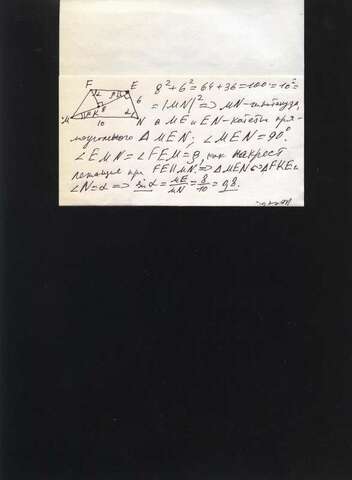 F E
8²+6²=64+36=100=10²=
α β 6
=|MN|² => MN-гипотенуза,
8
M β K α N
10
а ME и EN-катеты пря-
моугольного ΔMEN; ∠MEN=90°
∠EMN=∠FEM=β, как накрест
лежащие при FE∥MN. => ΔMEN∽ΔFKE и
∠N=α => sinα = ME/MN = 8/10 = 0,8.